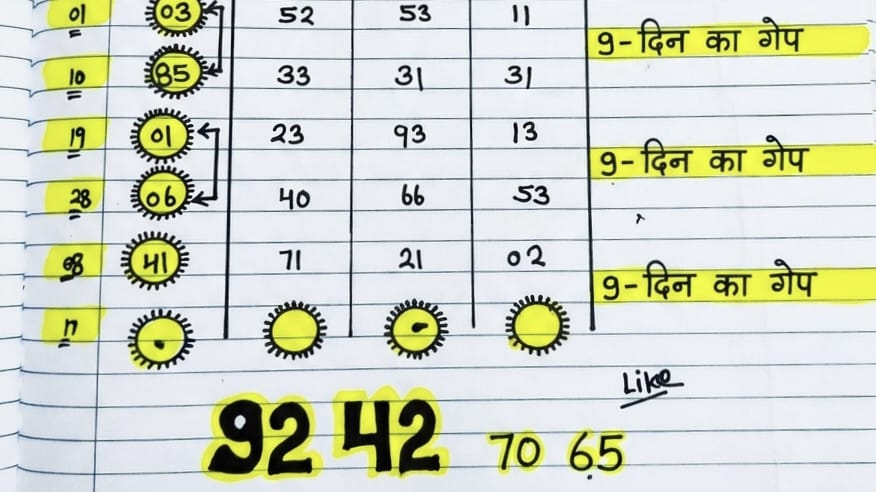 01 03 52 53 11
9-दिन का गेप
10 85 33 31 31
19 01 23 93 13
9-दिन का गेप
28 06 40 66 53
08 41 71 21 02
9-दिन का गेप
17
Like
92 42 70 65